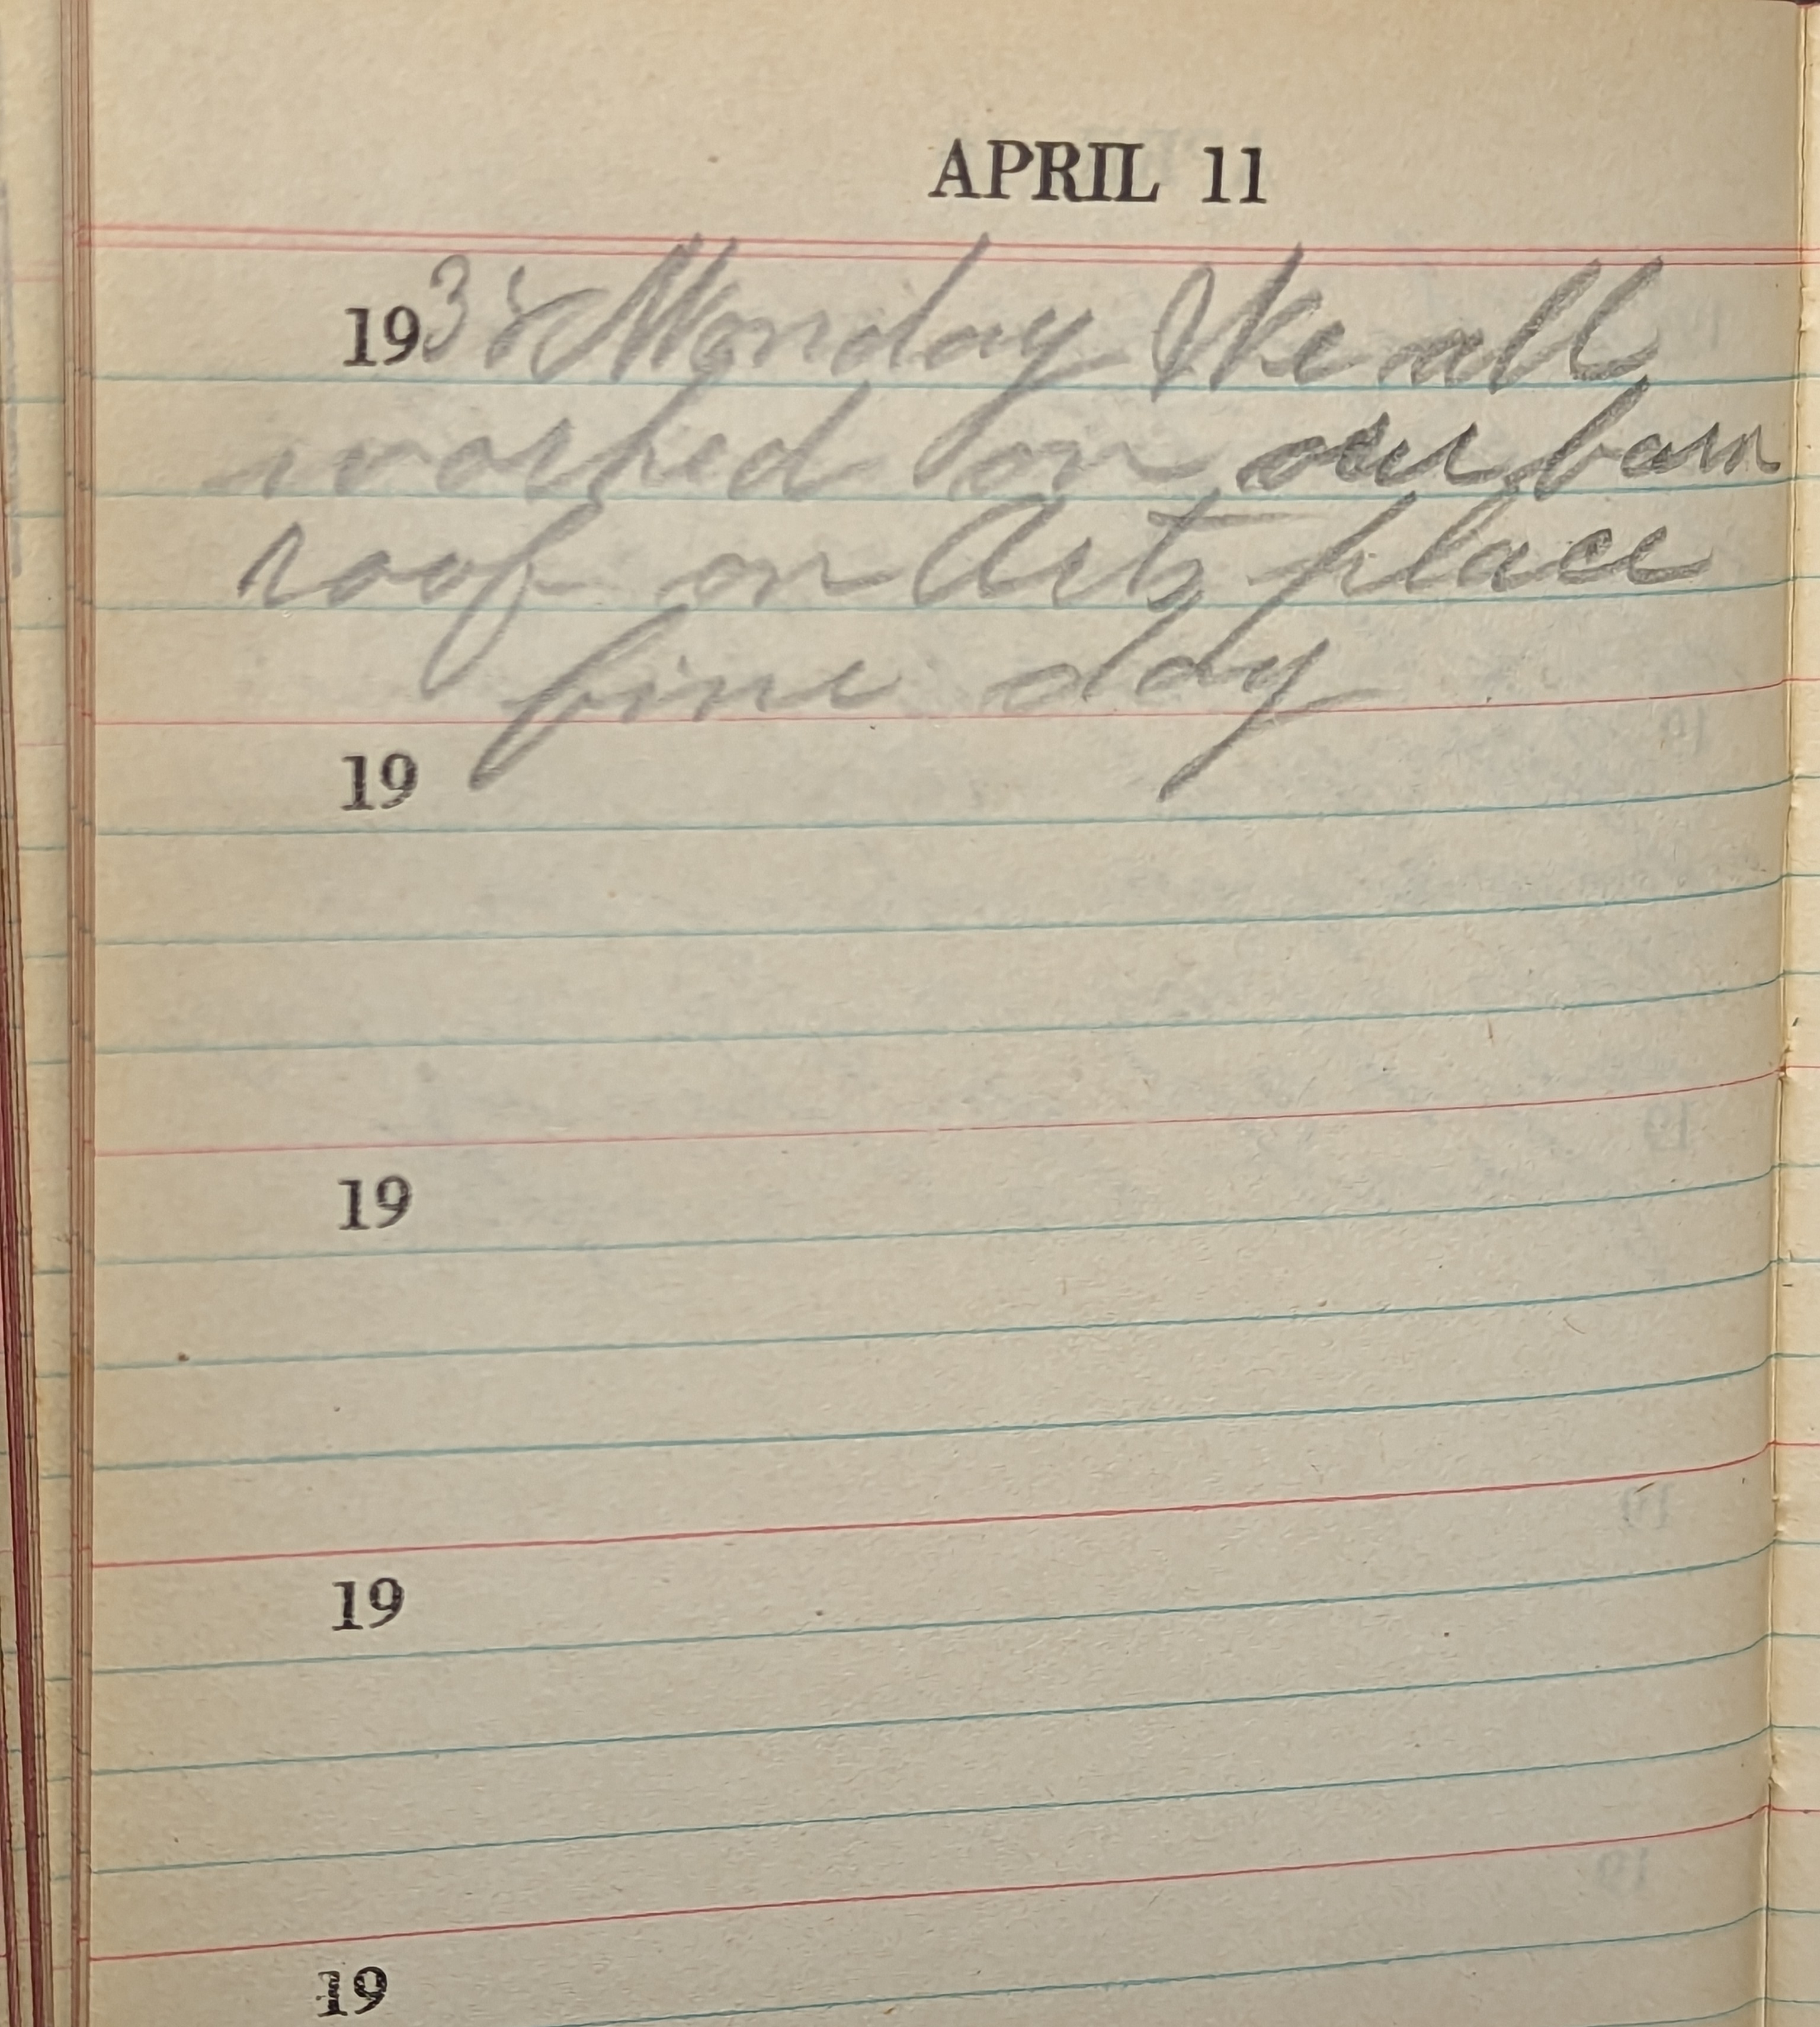 APRIL 11
1938 Monday We all
worked on our barn
roof on Arts place
fine day
19
19
19
19